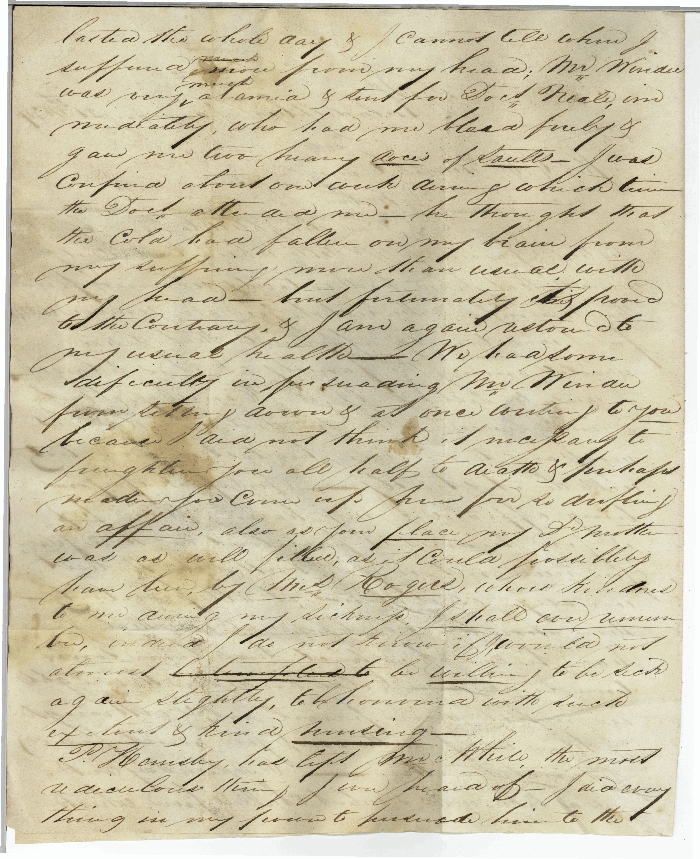 lasted the whole day & I cannot tell when I
suffered more from my head; Mr Winder
was very much alarmed & sent for Doct Neale, im
mediately, who had me bleed freely &
gave me two heavy doces of Saults – I was
confined about one week during which time
the Doct attended me – he thought that
the Cold had fallen on my brain from
my suffering more than usual, with
my head – but fortunately this proved
to the Contrary, & I am again restored to
my usual health – We had some
difficulty in persuading Mr Winder
from setting down & at once writing to you
because I did not think it necessary to
frighten you all half to death & perhaps
made you Come up here for so trifling
an affair, also as your place my Dr mother
was as well filled, as it Could possibley
have been, by Mrs Rogers, whose kindness
to me during my sickness, I shall ever remem
ber, indeed I do not know if I would not
almost be willing to be sick
again slightly, to be honored with such
& kind nursing –
P. Hornsby, has left Mr White, the most
rediculous thing I ever heard of – I did every
thing in my power to persuade him to the